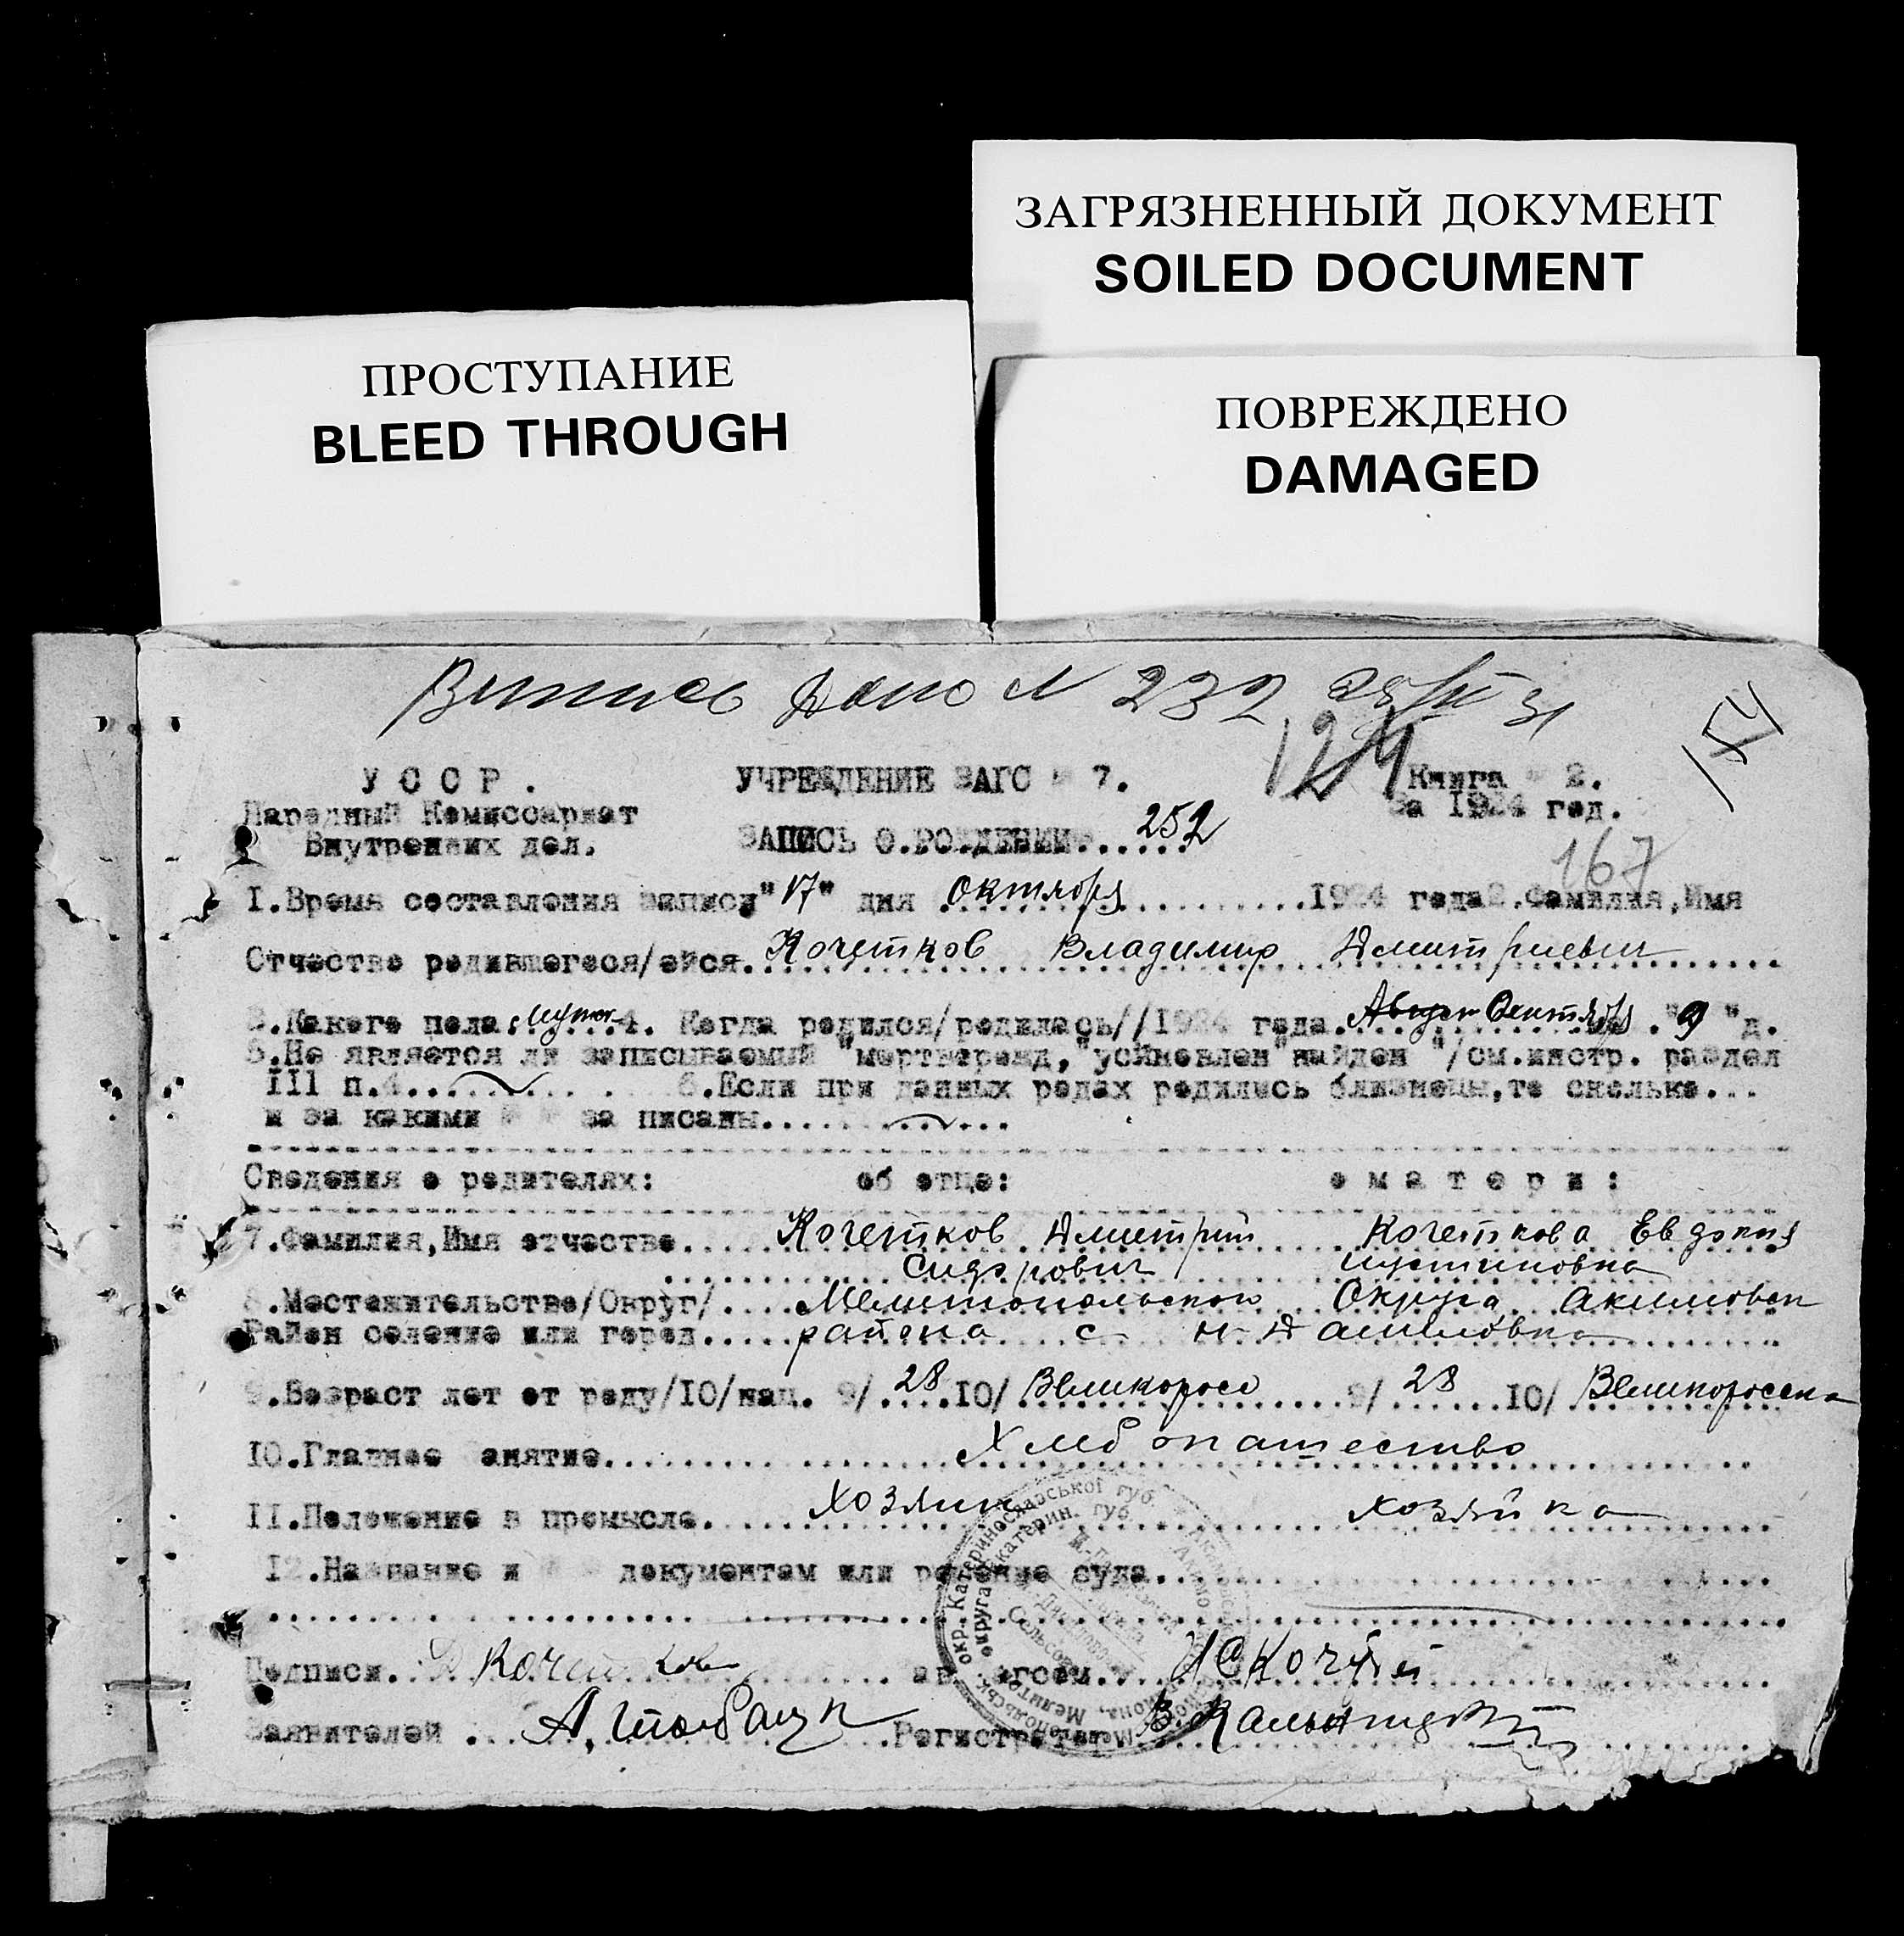 ЗАГРЯЗНЕННЫЙ ДОКУМЕНТ
SOILED DOCUMENT
ПРОСТУПАНИЕ
BLEED THROUGH
ПОВРЕЖДЕНО
DAMAGED
Випись дано N 232
154
124
У С С Р .
УЧРЕЖДЕНИЕ ЗАГС № 7.
Книга № 2.
За 1924 год.
Народный Комиссариат
Внутренних дел.
ЗАПИСЬ О.РОЖДЕНИИ...... 252
167
1.Время составления записи "17" дня октября ..........1924 года2.Фамилия,Имя
Отчество родившегося/ейся. Кочетков Владимир Дмитриевич
3.Какого пола. муж. 4. Когда родился/родилась//1924 года. Август Октября . "9 "д.
5.Не является ли записываемый "мертворожд,"усыновлен"найден "/см.инстр. раздел
III п.4.......... 6.Если при данных родах родились близнецы,то сколько...
и за какими № № за писаны............
Сведения о родителях: об отце: о м а т е р и :
7.Фамилия,Имя отчество..... Кочетков Дмитрий Кочеткова Евдокия
Сидорович Устиновна
8.Местожительство/Округ/.... Мелитопольского Округа Акимовск
Район селение или город..... района с. Н-Даниловка
9.Возраст лет от роду/10/нац. 9/ 28 10/ Великоросс 9/ 28 10/ Великоросска
10.Главное занятие........ Хлебопашество
11.Положение в промысле. хозяин хозяйка
12.Название и № № документам или решение суда.
Подписи. Д Кочетков
Заявителей .
Регистратор